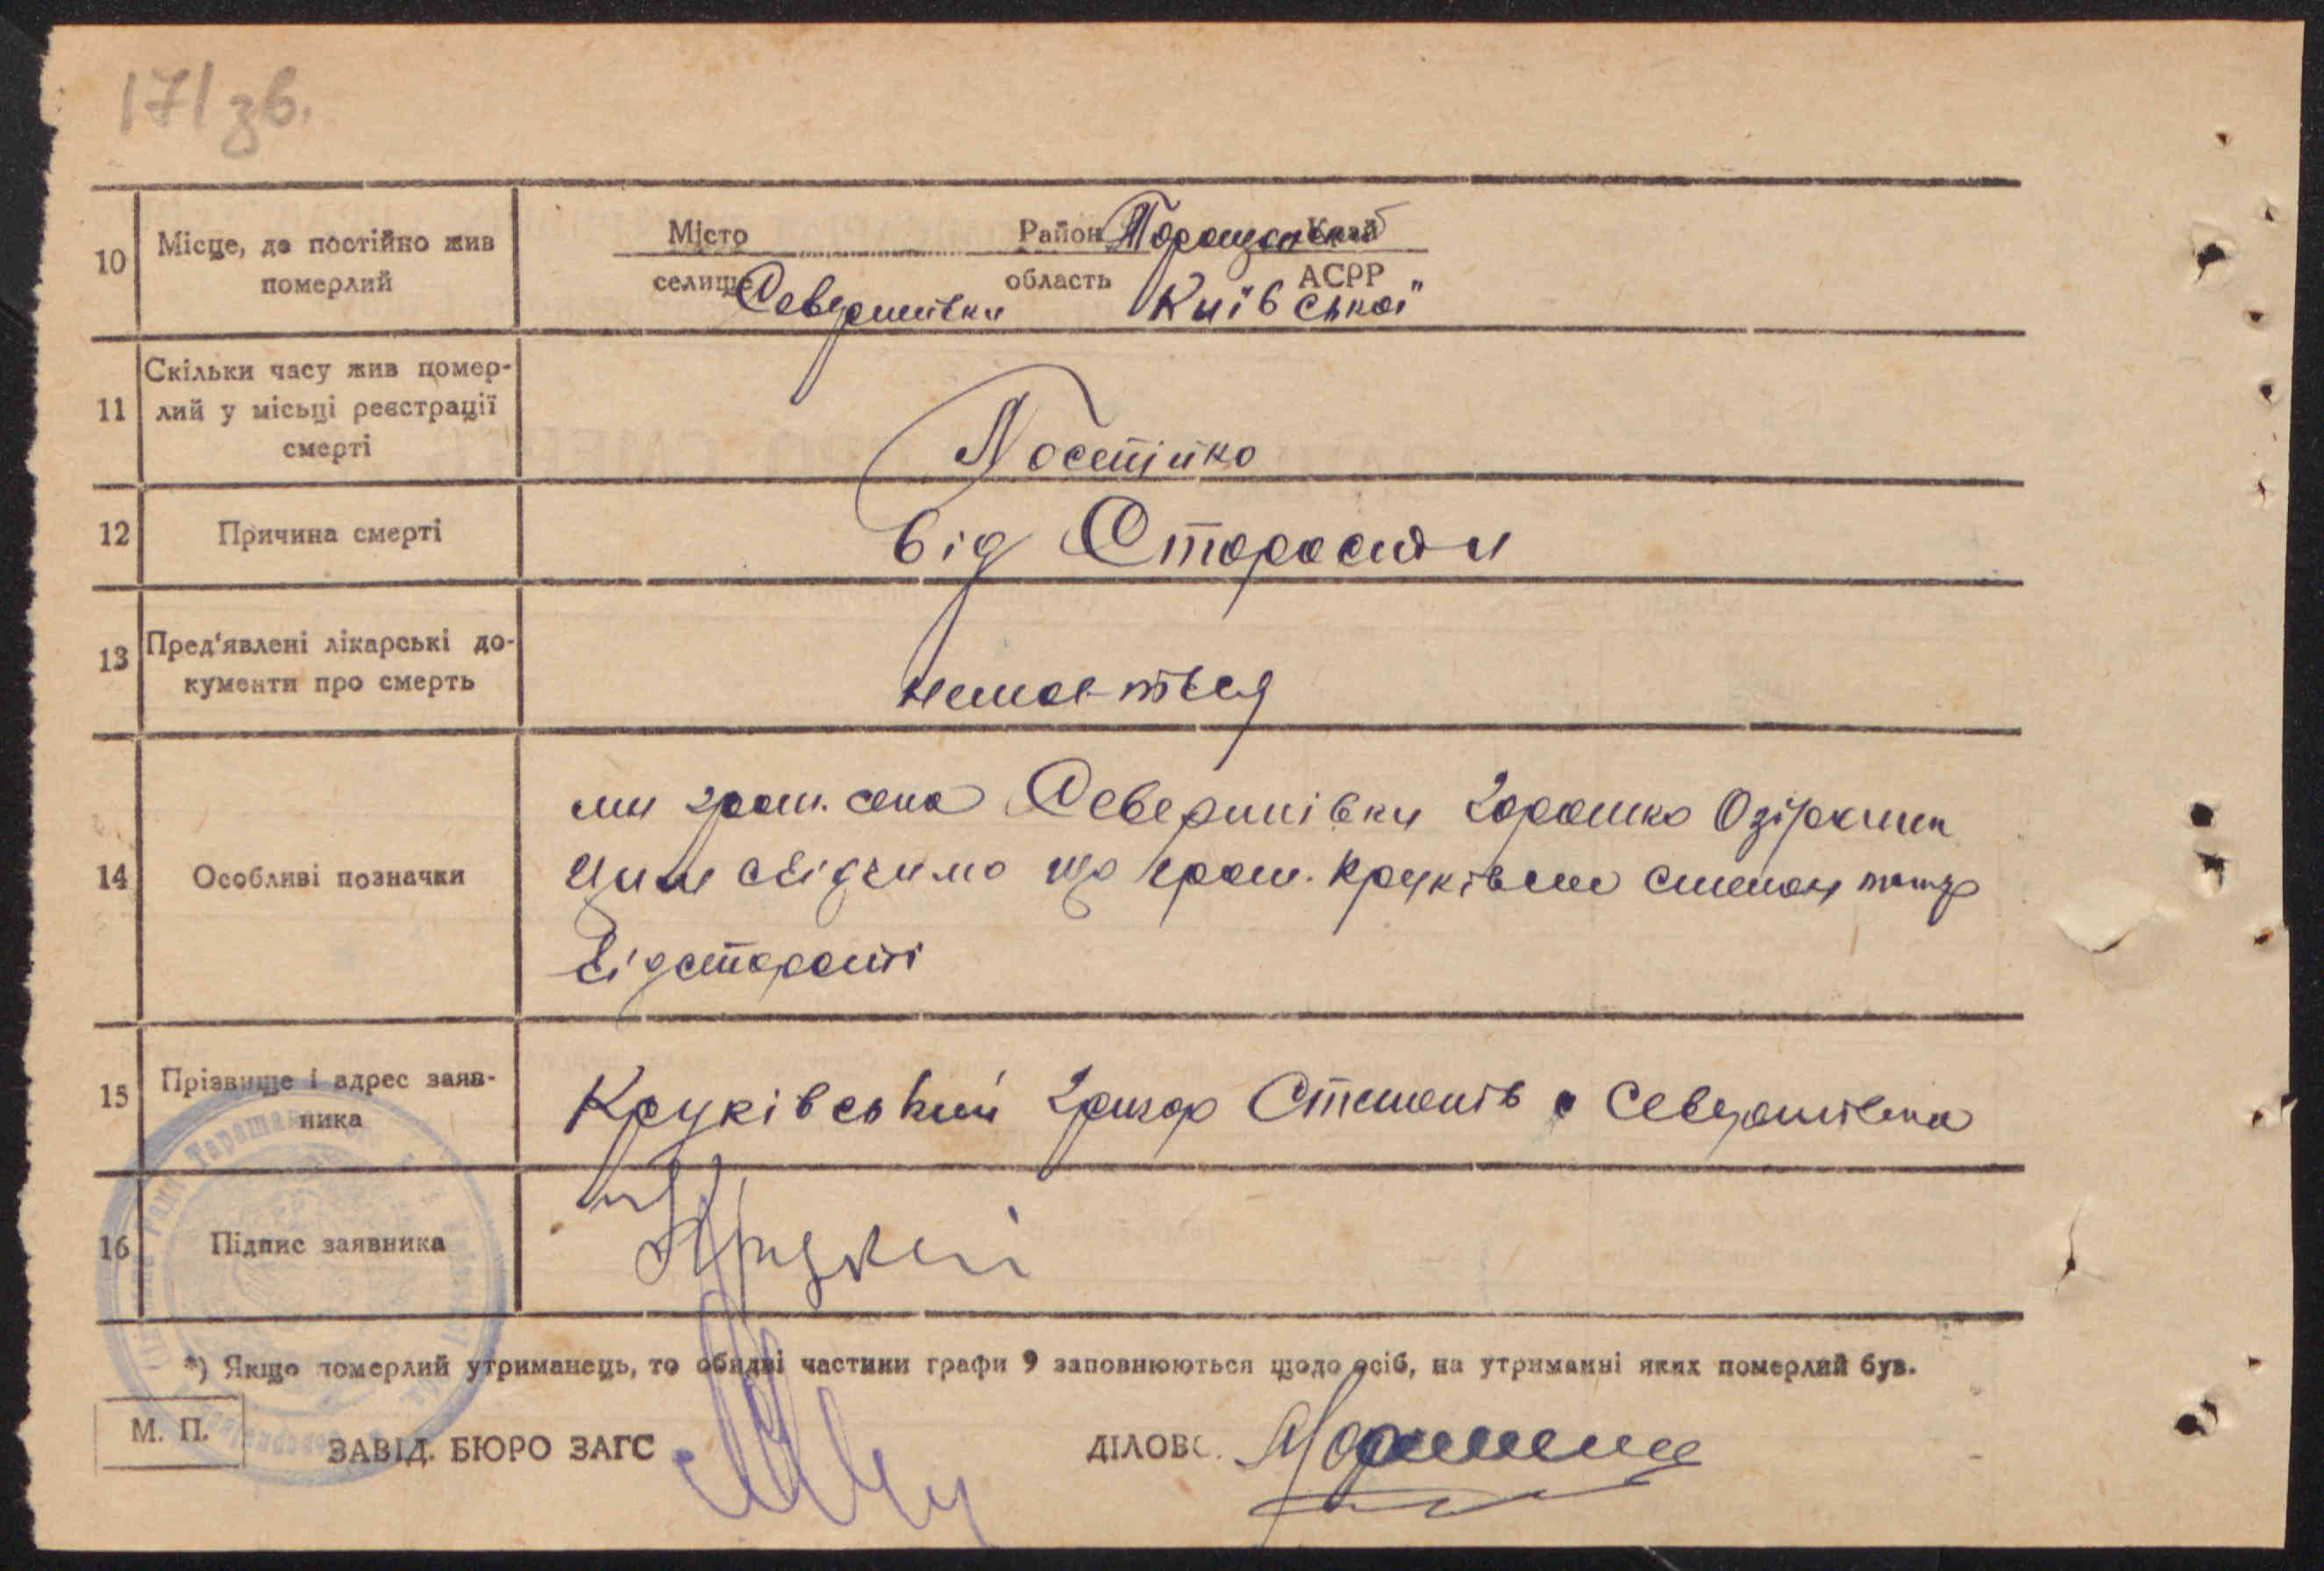 171 зв.
10 Місце, де постійно жив померлий
Місто Район Таращанський Край
селище Северинівки область Київської АСРР
11 Скільки часу жив помер-
лий у місьці реєстрації
смерті
Постійно
12 Причина смерті
від Старости
13 Пред'явлені лікарські до-
кументи про смерть
14 Особливі позначки
ми гром. села Северинівки Горошко
Цим свідчимо що гром. Круківськ Степан
відстарості
15 Прізвище і адрес заяв-
ника
Круківський Григор Степанів с Северинівка
16 Підпис заявника
*) Якщо померлий утриманець, то обидві частини графи 9 заповнюються щодо осіб, на утриманні яких померлий був.
М. П.
ЗАВІД. БЮРО ЗАГС ДІЛОВС.